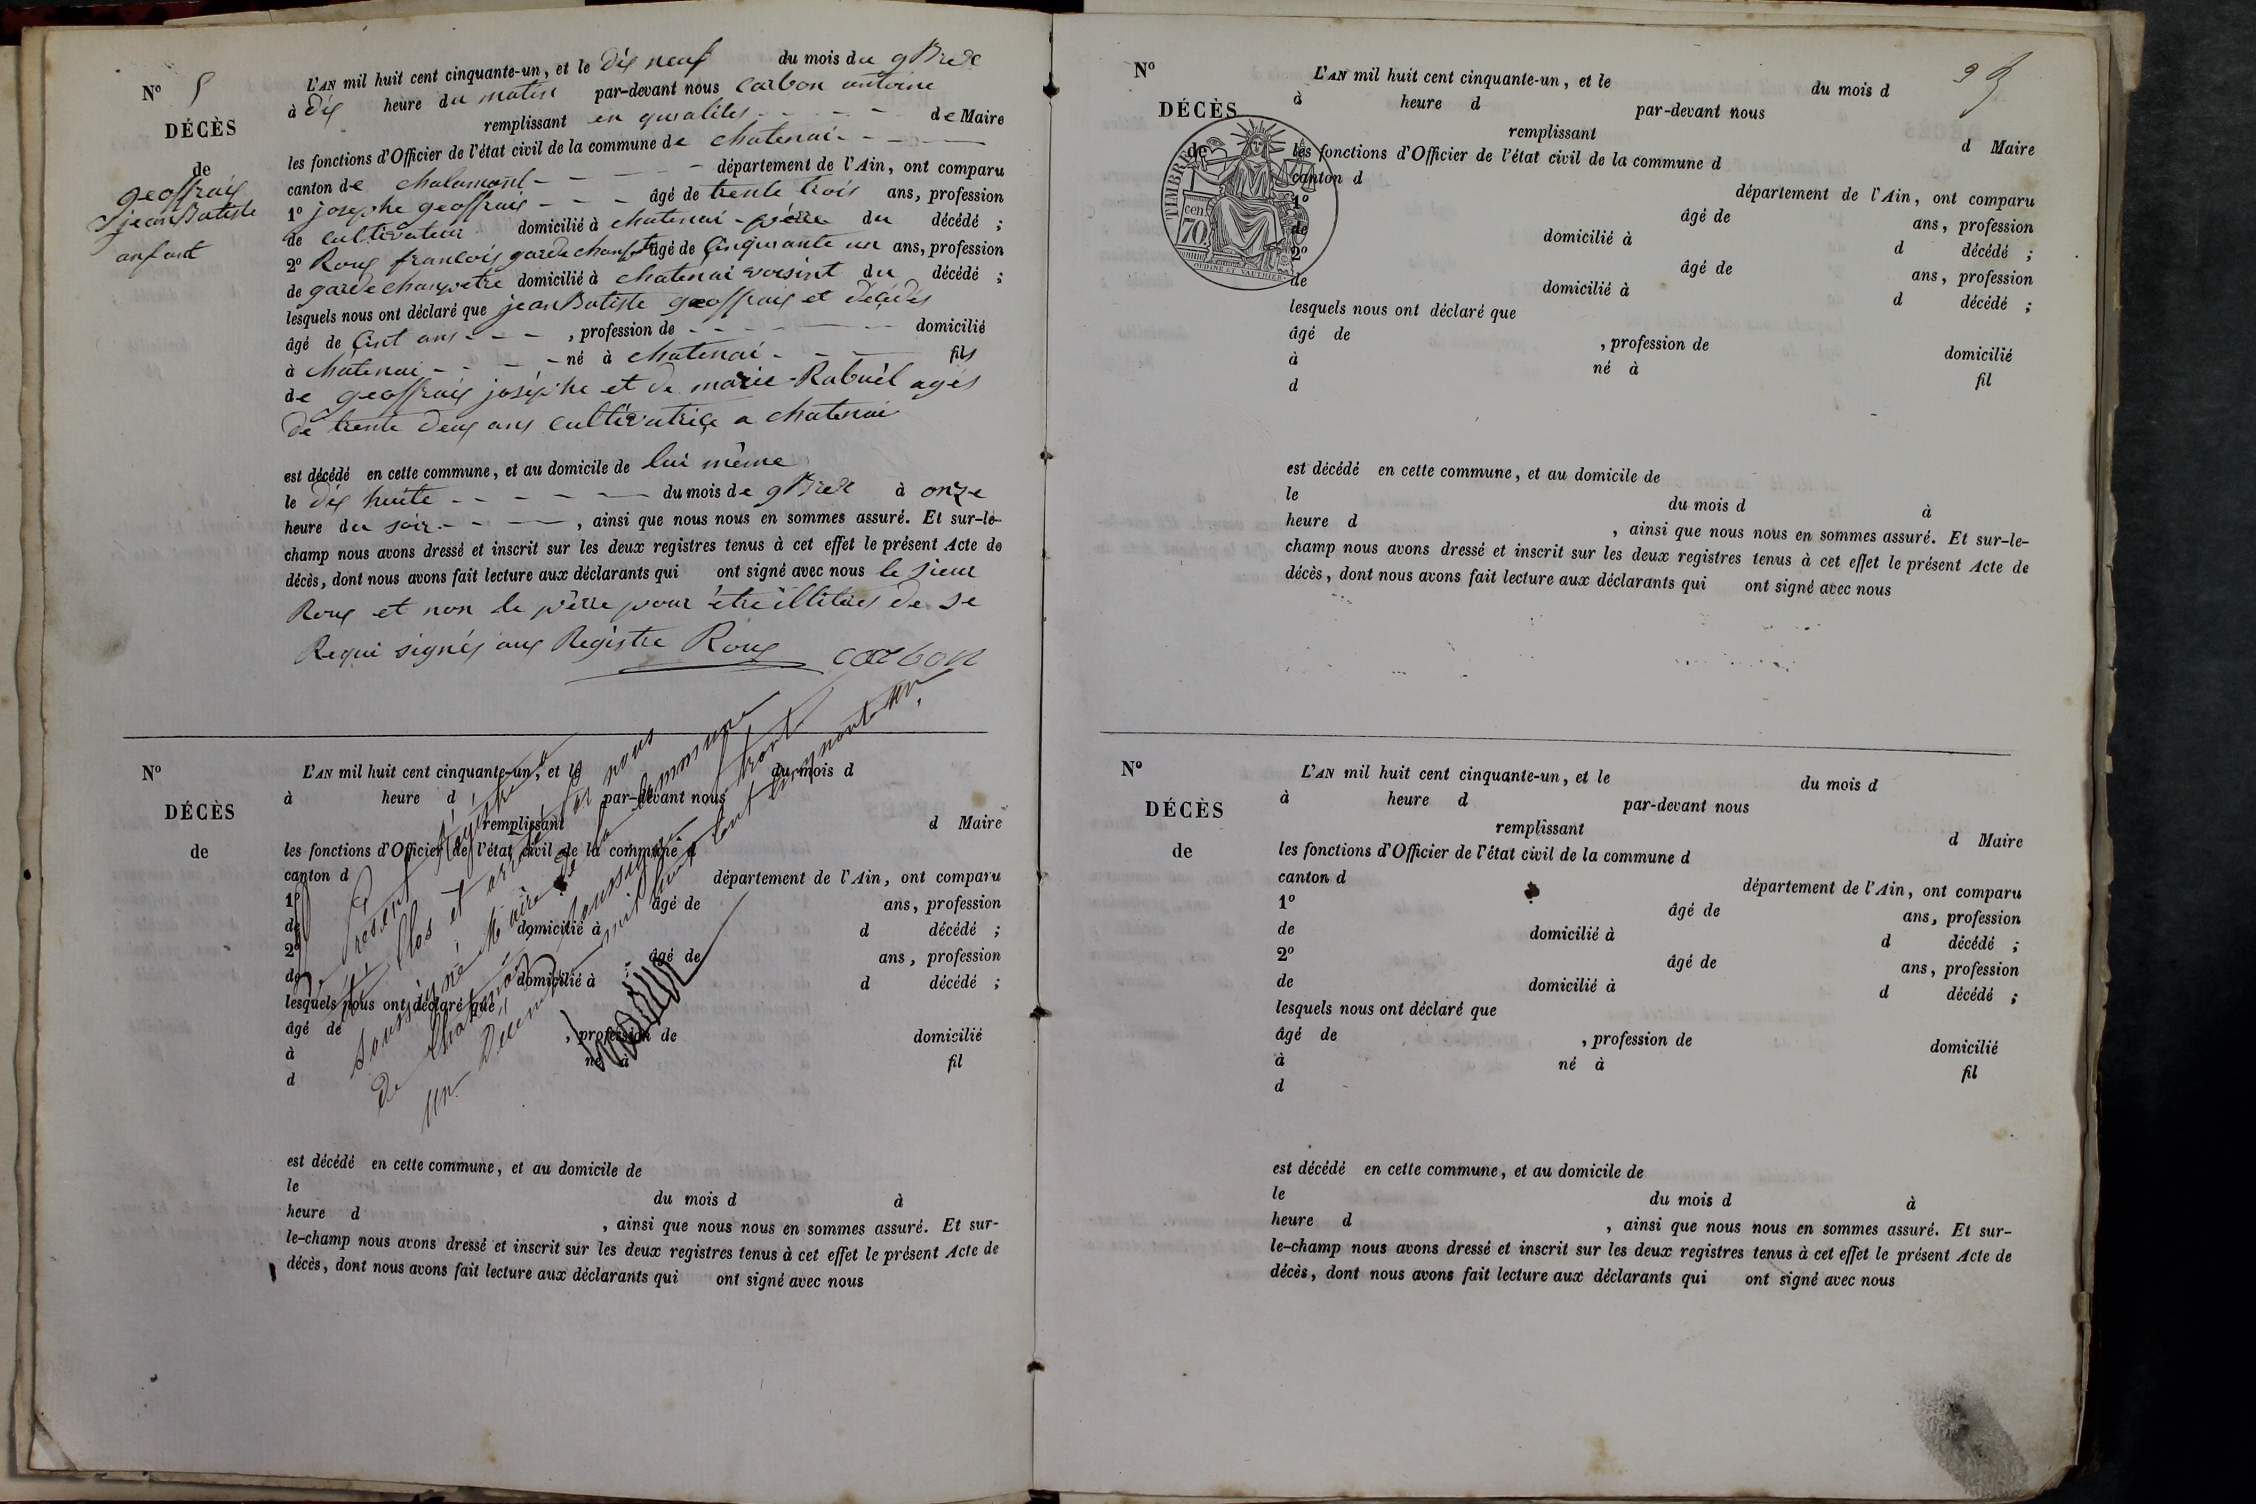 N° 5
DÉCÈS
de
geoffraix
jean Batiste
anfant
L'AN mil huit cent cinquante-un, et le dix neuf du mois du 9Bre
à dix heure du matin par-devant nous carbon antoine
remplissant en qualites de Maire
les fonctions d'Officier de l'état civil de la commune de chatenai
canton de chalamont département de l'Ain, ont comparu
1° josephe geoffraix âgé de trente trois ans, profession
de cultivateur domicilié à chatenai père du décédé ;
2° Roux francois garde champt âgé de çinquante un ans, profession
de garde champetre domicilié à chatenai voisint du décédé ;
lesquels nous ont déclaré que jean Batiste geoffraix et décédés
âgé de çint ans , profession de domicilié
à chatenai né à chatenai fils
de geoffraix josephe et de marie Rabuèl agés
de trente deux ans cultivatriçe a chatenai
est décédé en cette commune, et au domicile de lui même
le dix huite du mois de 9Bre à onze
heure du soir , ainsi que nous nous en sommes assuré. Et sur-le-
champ nous avons dressé et inscrit sur les deux registres tenus à cet effet le présent Acte de
décès, dont nous avons fait lecture aux déclarants qui ont signé avec nous le sieur
Roux et non le père pour être illitérés de se
Requi signéz aux Registre Roux carbon
N°
DÉCÈS
de
L'AN mil huit cent cinquante-un, et le du mois d
à heure d par-devant nous
remplissant d Maire
les fonctions d'Officier de l'état civil de la commune d
canton d département de l'Ain, ont comparu
1° âgé de ans, profession
de domicilié à d décédé ;
2° âgé de ans, profession
de domicilié à d décédé ;
lesquels nous ont déclaré que
âgé de , profession de domicilié
à né à fil
d
Le Présent Registre a
été Clos et arrêté par nous
soussigné Maire de la commune
de Chatenay, soussigné le trent
un Décembre mil huit cent cinquante un.
est décédé en cette commune, et au domicile de
le du mois d à
heure d , ainsi que nous nous en sommes assuré. Et sur-
le-champ nous avons dressé et inscrit sur les deux registres tenus à cet effet le présent Acte de
décès, dont nous avons fait lecture aux déclarants qui ont signé avec nous
N°
DÉCÈS
de
TIMBRE
70 cen
OUDINÉ ET VAUTHIER
L'AN mil huit cent cinquante-un, et le du mois d
à heure d par-devant nous
remplissant d Maire
les fonctions d'Officier de l'état civil de la commune d
canton d département de l'Ain, ont comparu
1° âgé de ans, profession
de domicilié à d décédé ;
2° âgé de ans, profession
de domicilié à d décédé ;
lesquels nous ont déclaré que
âgé de , profession de domicilié
à né à fil
d
est décédé en cette commune, et au domicile de
le du mois d à
heure d , ainsi que nous nous en sommes assuré. Et sur-le-
champ nous avons dressé et inscrit sur les deux registres tenus à cet effet le présent Acte de
décès, dont nous avons fait lecture aux déclarants qui ont signé avec nous
N°
DÉCÈS
de
L'AN mil huit cent cinquante-un, et le du mois d
à heure d par-devant nous
remplissant d Maire
les fonctions d'Officier de l'état civil de la commune d
canton d département de l'Ain, ont comparu
1° âgé de ans, profession
de domicilié à d décédé ;
2° âgé de ans, profession
de domicilié à d décédé ;
lesquels nous ont déclaré que
âgé de , profession de domicilié
à né à fil
d
est décédé en cette commune, et au domicile de
le du mois d à
heure d , ainsi que nous nous en sommes assuré. Et sur-
le-champ nous avons dressé et inscrit sur les deux registres tenus à cet effet le présent Acte de
décès, dont nous avons fait lecture aux déclarants qui ont signé avec nous